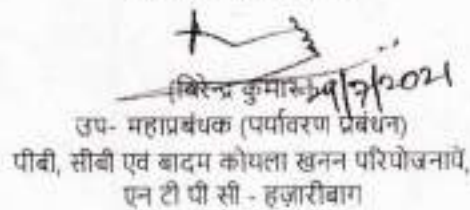 (बिरेन्द्र कुमार) 29/7/2021
उप- महाप्रबंधक (पर्यावरण प्रबंधन)
पीबी, सीबी एवं बादम कोयला खनन परियोजनायें,
एन टी पी सी - हज़ारीबाग